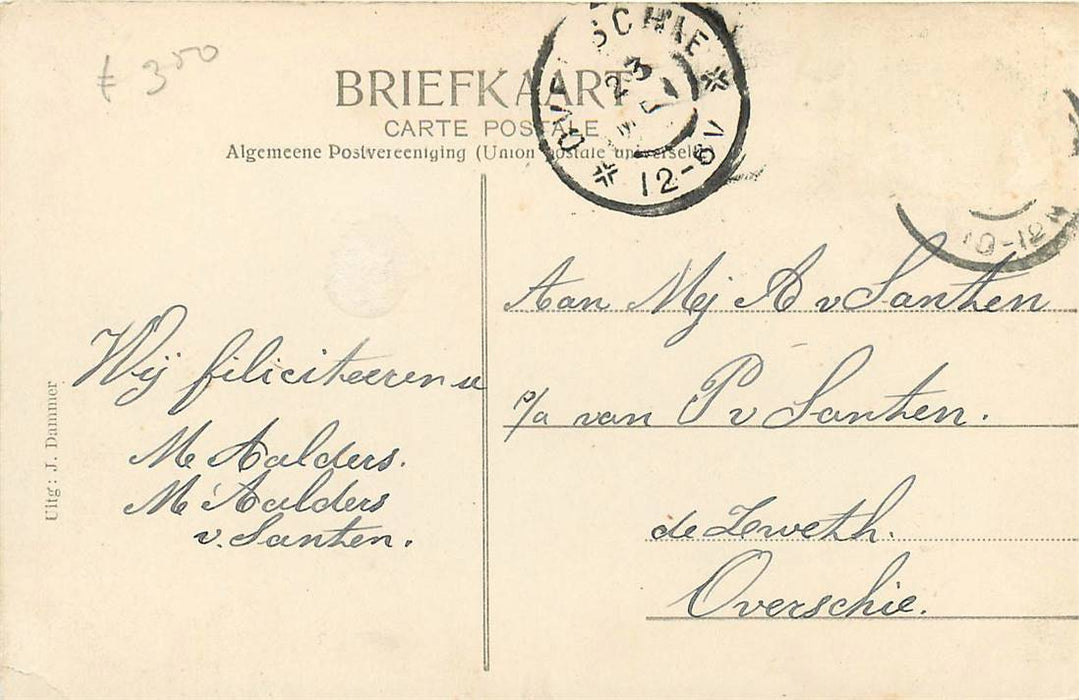 £ 3⁵⁰
BRIEFKAART
CARTE POSTALE
Algemeene Postvereeniging (Union postale universelle)
OVERSCHIE
23
12-8V
10-12
Aan Mej A v Santen
p/a van P v Santen.
de Zweth.
Overschie.
Wij filiciteeren u
M Aalders.
M Aalders
v. Santen.
Uitg: J. Dammer